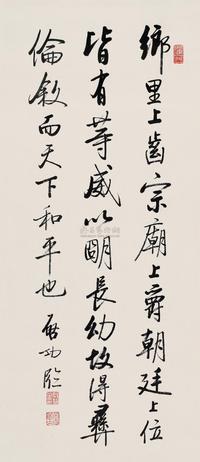 鄉里上齒宗廟上爵朝廷上位
皆有等威以明長幼故得彝
倫敘而天下和平也 啟功臨